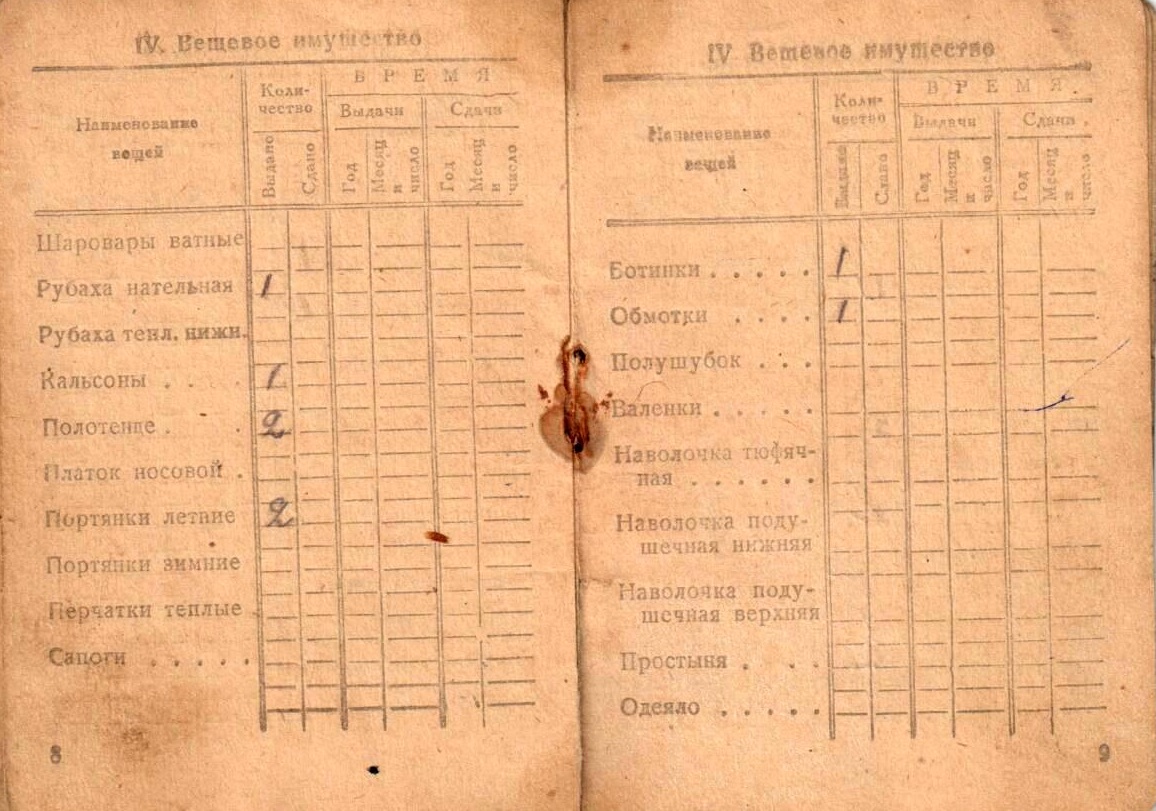 IV. Вещевое имущество
Наименование
вещей
Коли-
чество
ВРЕМЯ
Выдачи
Сдачи
Выдано
Сдано
Год
Месяц
и
число
Год
Месяц
и
число
Шаровары ватные
Рубаха нательная 1
Рубаха тепл. нижн.
Кальсоны . . . . 1
Полотенце . . 2
Платок носовой .
Портянки летние 2
Портянки зимние
Перчатки теплые .
Сапоги . . . . .
8
IV Вещевое имущество
Наименование
вещей
Коли-
чество
ВРЕМЯ
Выдачи
Сдачи
Выдано
Сдано
Год
Месяц
и
число
Год
Месяц
и
число
Ботинки . . . . . 1
Обмотки . . . . 1
Полушубок . . .
Валенки . . . . .
Наволочка тюфяч-
ная . . . . . .
Наволочка поду-
шечная нижняя
Наволочка поду-
шечная верхняя
Простыня . . . .
Одеяло . . . . .
9